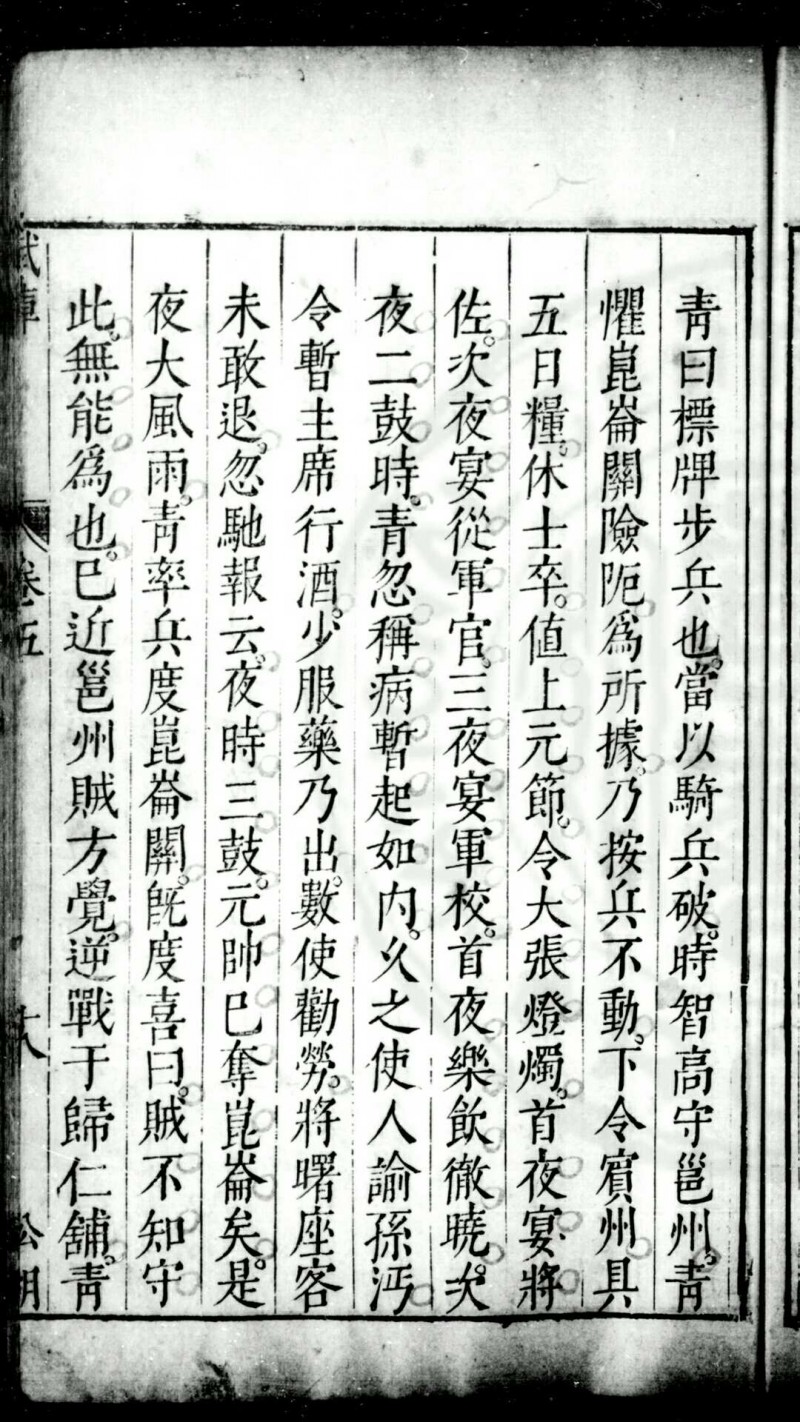 青曰標牌步兵也。當以騎兵破。時智高守邕州。青
懼崑崙關險阨。爲所據。乃按兵不動。下令賓州具
五日糧。休士卒。值上元節。令大張燈燭。首夜宴將
佐。次夜宴從軍官。三夜宴軍校。首夜樂飲徹曉。次
夜二鼓時。青忽稱病暫起如内。久之使人諭孫沔
令暫主席行酒。少服藥乃出。數使勸勞。將曙座客
未敢退。忽馳報云。夜時三鼓。元帥巳奪崑崙矣。是
夜大風雨。青率兵度崑崙關。旣度喜曰。賊不知守
此。無能爲也。巳近邕州賊方覺。逆戰于歸仁舖。青
武庫 卷五 十八